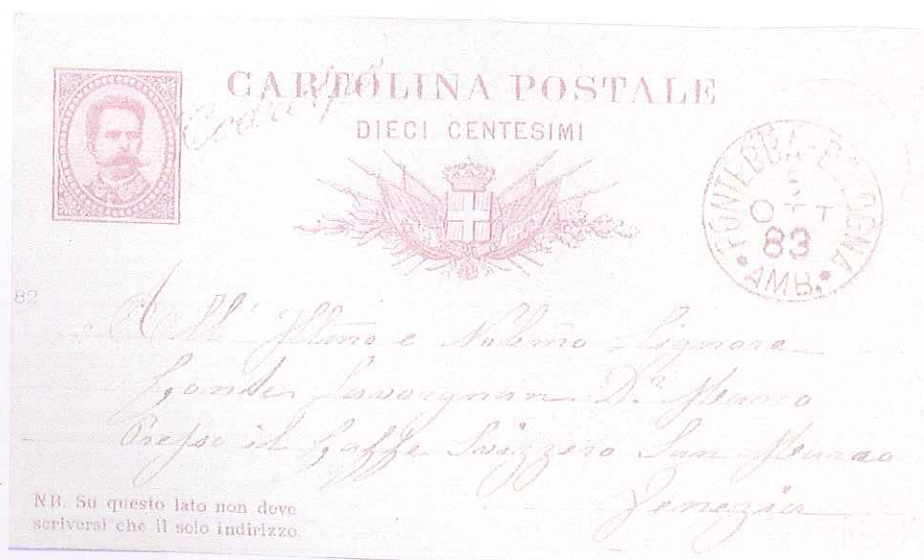 CARTOLINA POSTALE
Codroipo
DIECI CENTESIMI
PONTEBBA-BOLOGNA
OTT
83
*AMB.*
82
All' Illmo e Nobmo Signore
Conte Savorgnan Dn. Marco
Presso il Caffe Svizzero San Marco
Venezia
NB. Su questo lato non deve
scriversi che il solo indirizzo.